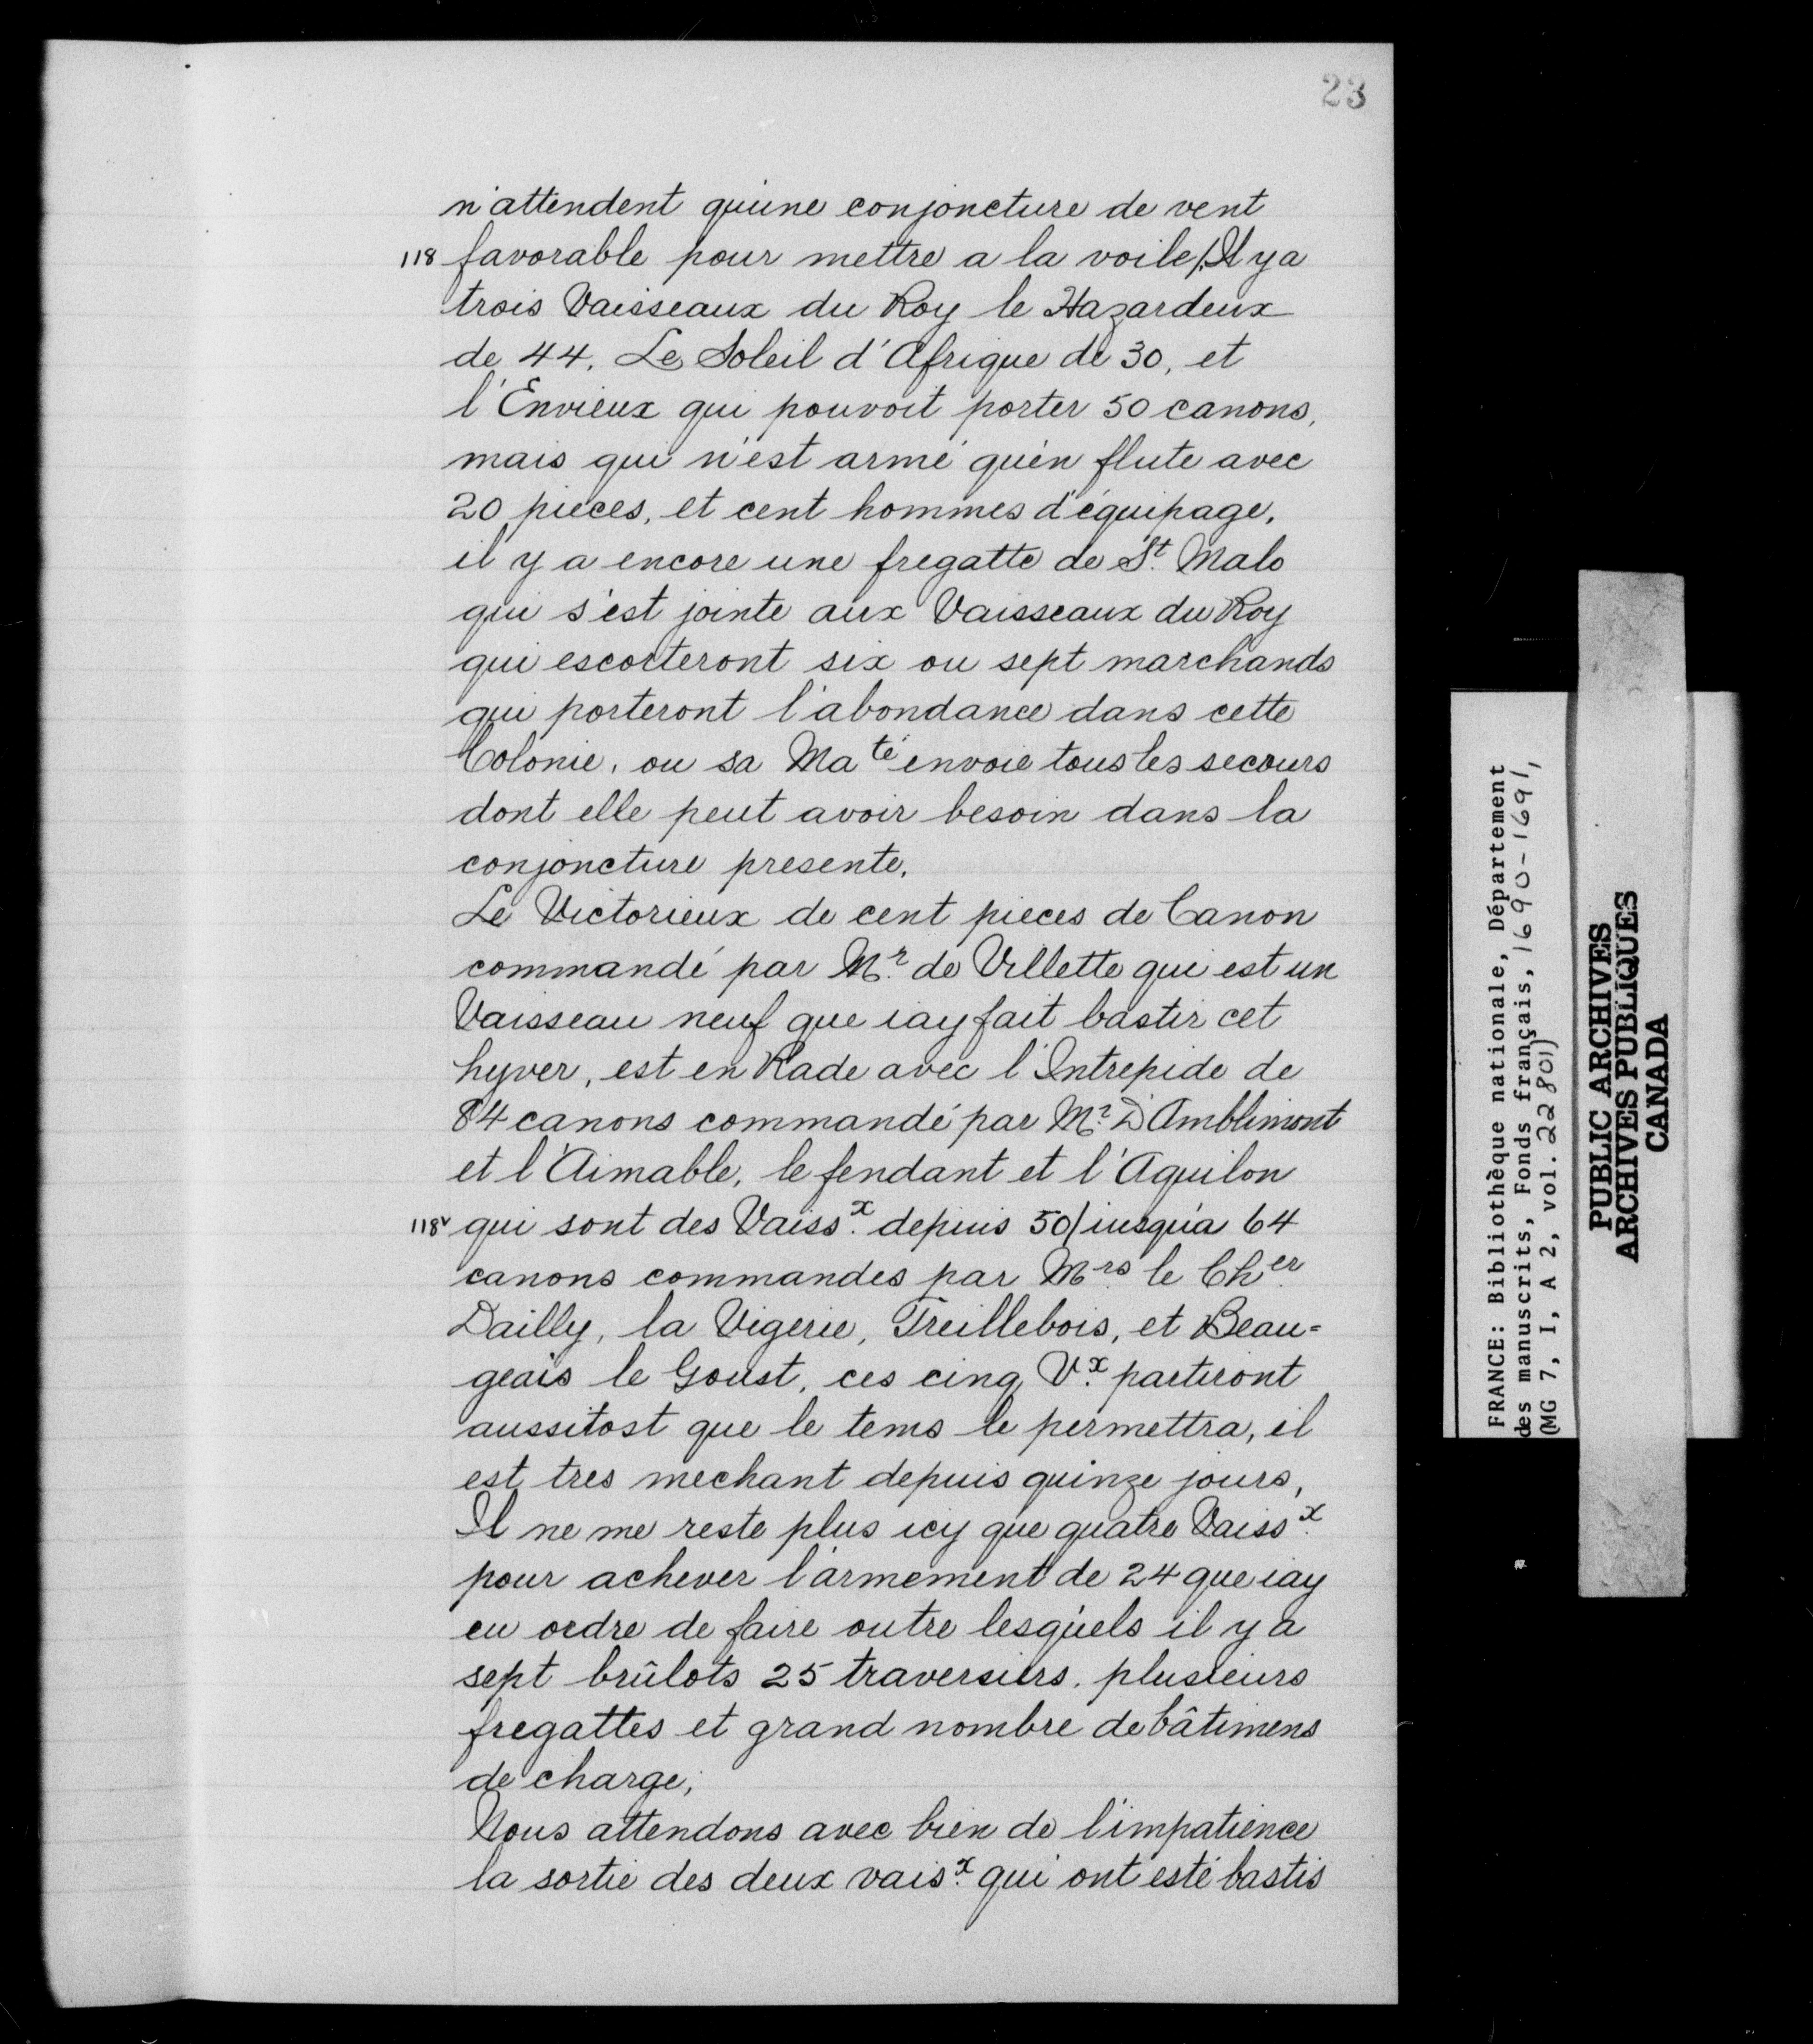 23
n'attendent qu'une conjoncture de vent
118 favorable pour mettre a la voile/. Il y a
trois Vaisseaux du Roy le Hazardeux
de 44. Le Soleil d'Afrique de 30, et
l'Envieux qui pouvoit porter 50 canons,
mais qui n'est armé qu'en flute avec
20 pieces, et cent hommes d'équipage,
il y a encore une fregatte de St. Malo
qui s'est jointe aux Vaisseaux du Roy
qui escorteront six ou sept marchands
qui porteront l'abondance dans cette
Colonie, ou sa Ma té envoie tous les secours
dont elle peut avoir besoin dans la
conjoncture presente.
Le Victorieux de cent pieces de Canon
commandé par Mr. de Villette qui est un
Vaisseau neuf que iay fait bastir cet
hyver, est en Rade avec l'Intrepide de
84 canons commandé par Mr. D'Amblimont
et l'Aimable, le fendant et l'Aquilon
118v qui sont des Vaissx. depuis 50/iusqu'a 64
canons commandes par Mrs le Cher.
Dailly, la Vigerie, Treillebois, et Beau=
geais le Goust, ces cinq Vx. partiront
aussitost que le tems le permettra, il
est tres mechant depuis quinze jours,
Il ne me reste plus icy que quatre Vaissx.
pour achever l'armement de 24 que iay
eu ordre de faire outre lesquels il y a
sept brûlots 25 traversiers, plusieurs
fregattes et grand nombre de bâtimens
de charge;
Nous attendons avec bien de l'impatience
la sortie des deux vaisx. qui ont esté bastis
FRANCE: Bibliothèque nationale, Département
des manuscrits, Fonds français, 1690-1691,
(MG 7, I, A 2, vol. 22801)
PUBLIC ARCHIVES
ARCHIVES PUBLIQUES
CANADA